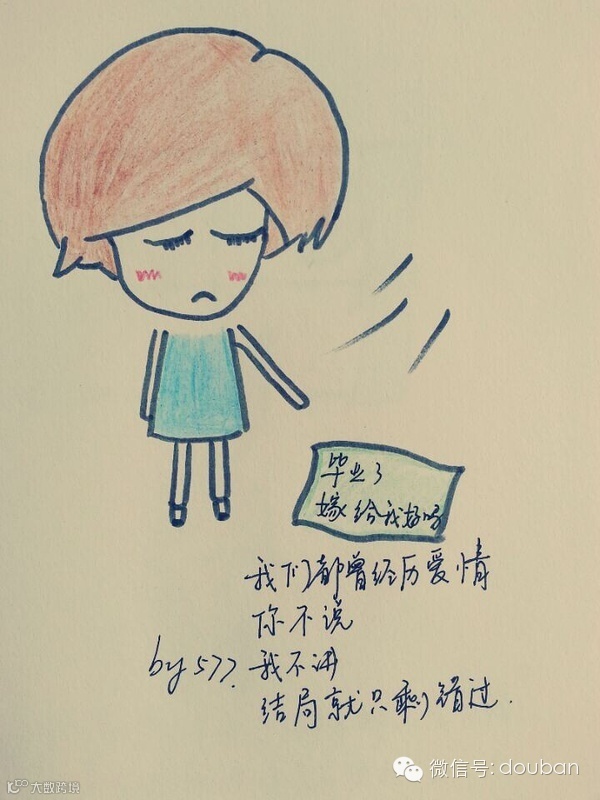 毕业了
嫁给我好吗
我们都曾经历爱情
你不说
by 577. 我不讲
结局就只剩错过.
微信号: douban
大数跨境